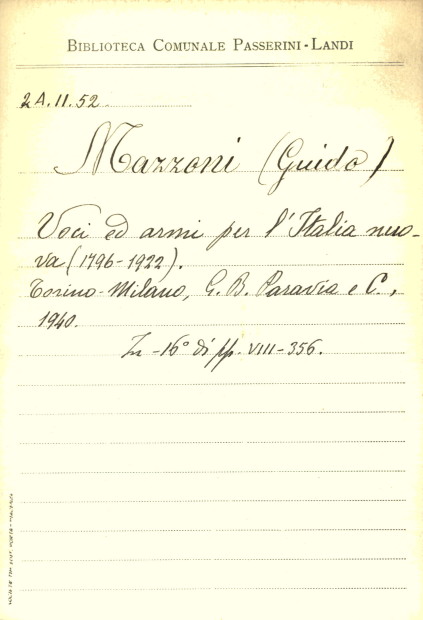 BIBLIOTECA COMUNALE PASSERINI-LANDI
2A.11.52.
Mazzoni (Guido)
Voci ed armi per l'Italia nuo-
va (1796-1922).
Torino-Milano, G. B. Paravia e C.,
1940.
In -16° di pp. VIII-356.